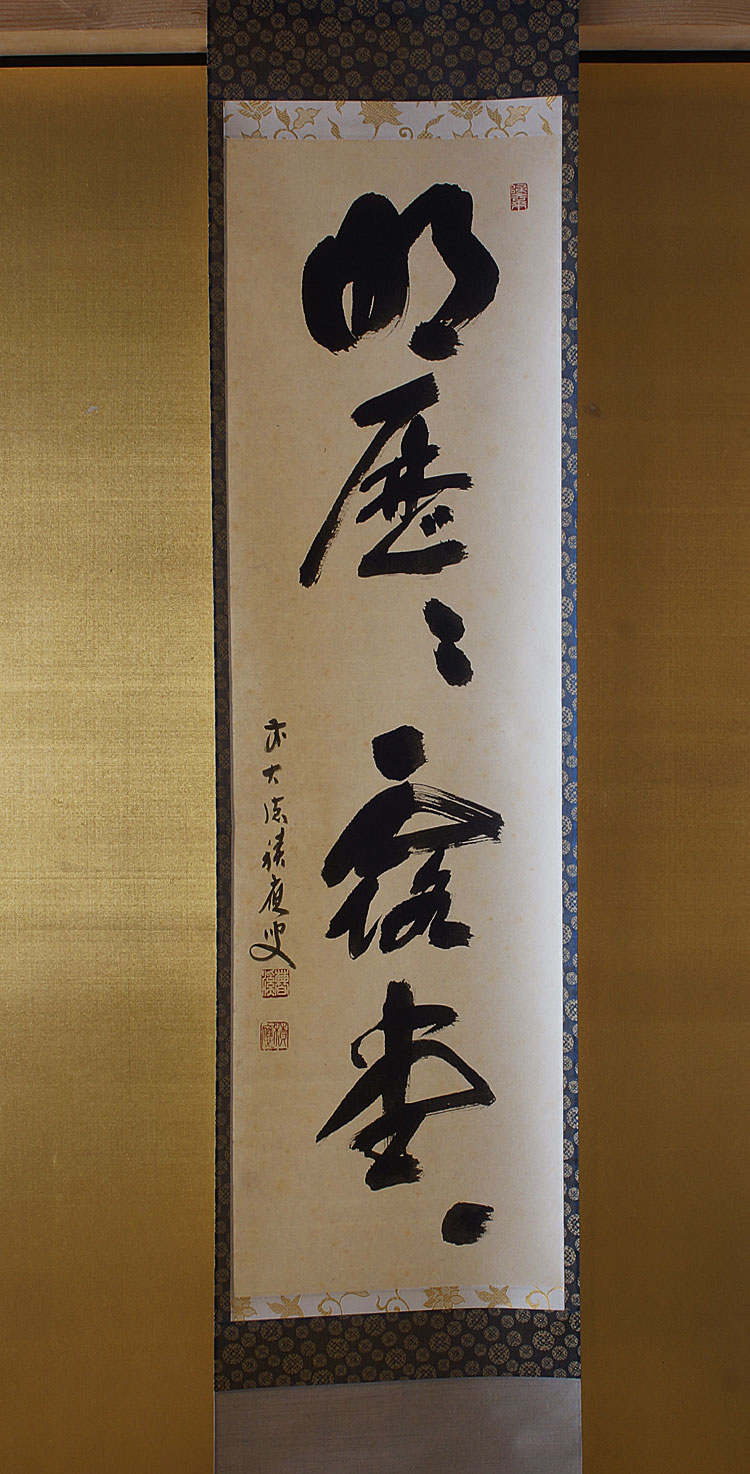 明歴々露堂々
前大徳積應叟